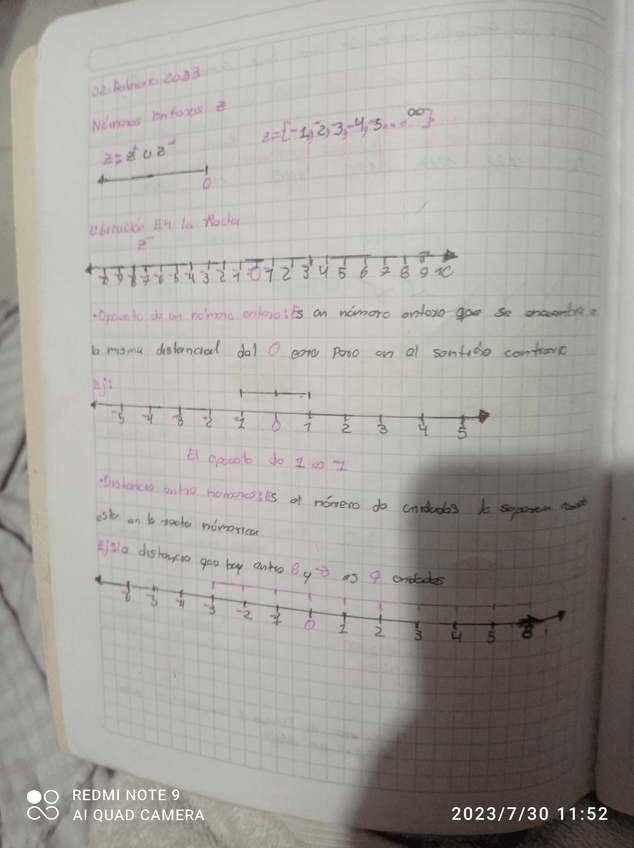 02 Febrero 2023
Números Enteros Z
Z = Z⁺ U Z⁻
Z={-1,-2,-3,-4,-5... ∞}
0
Ubicación En la Recta
Z⁻
-8 -7 -6 -5 -4 -3 -2 -1 0 1 2 3 4 5 6 7 8 9 10
•Opuesto de un número entero: Es un número entero que se encuentra a
la misma distancia del 0 cero pero en el sentido contrario
Ej:
-5 -4 -3 -2 -1 0 1 2 3 4 5
El opuesto de 1 es -1
•Distancia entre números: Es el número de unidades la separación
esta en la recta númerica
Ej: la distancia que hay entre 6 y -3 es 9 unidades
-6 -5 -4 -3 -2 -1 0 1 2 3 4 5 6
REDMI NOTE 9
AI QUAD CAMERA
2023/7/30 11:52